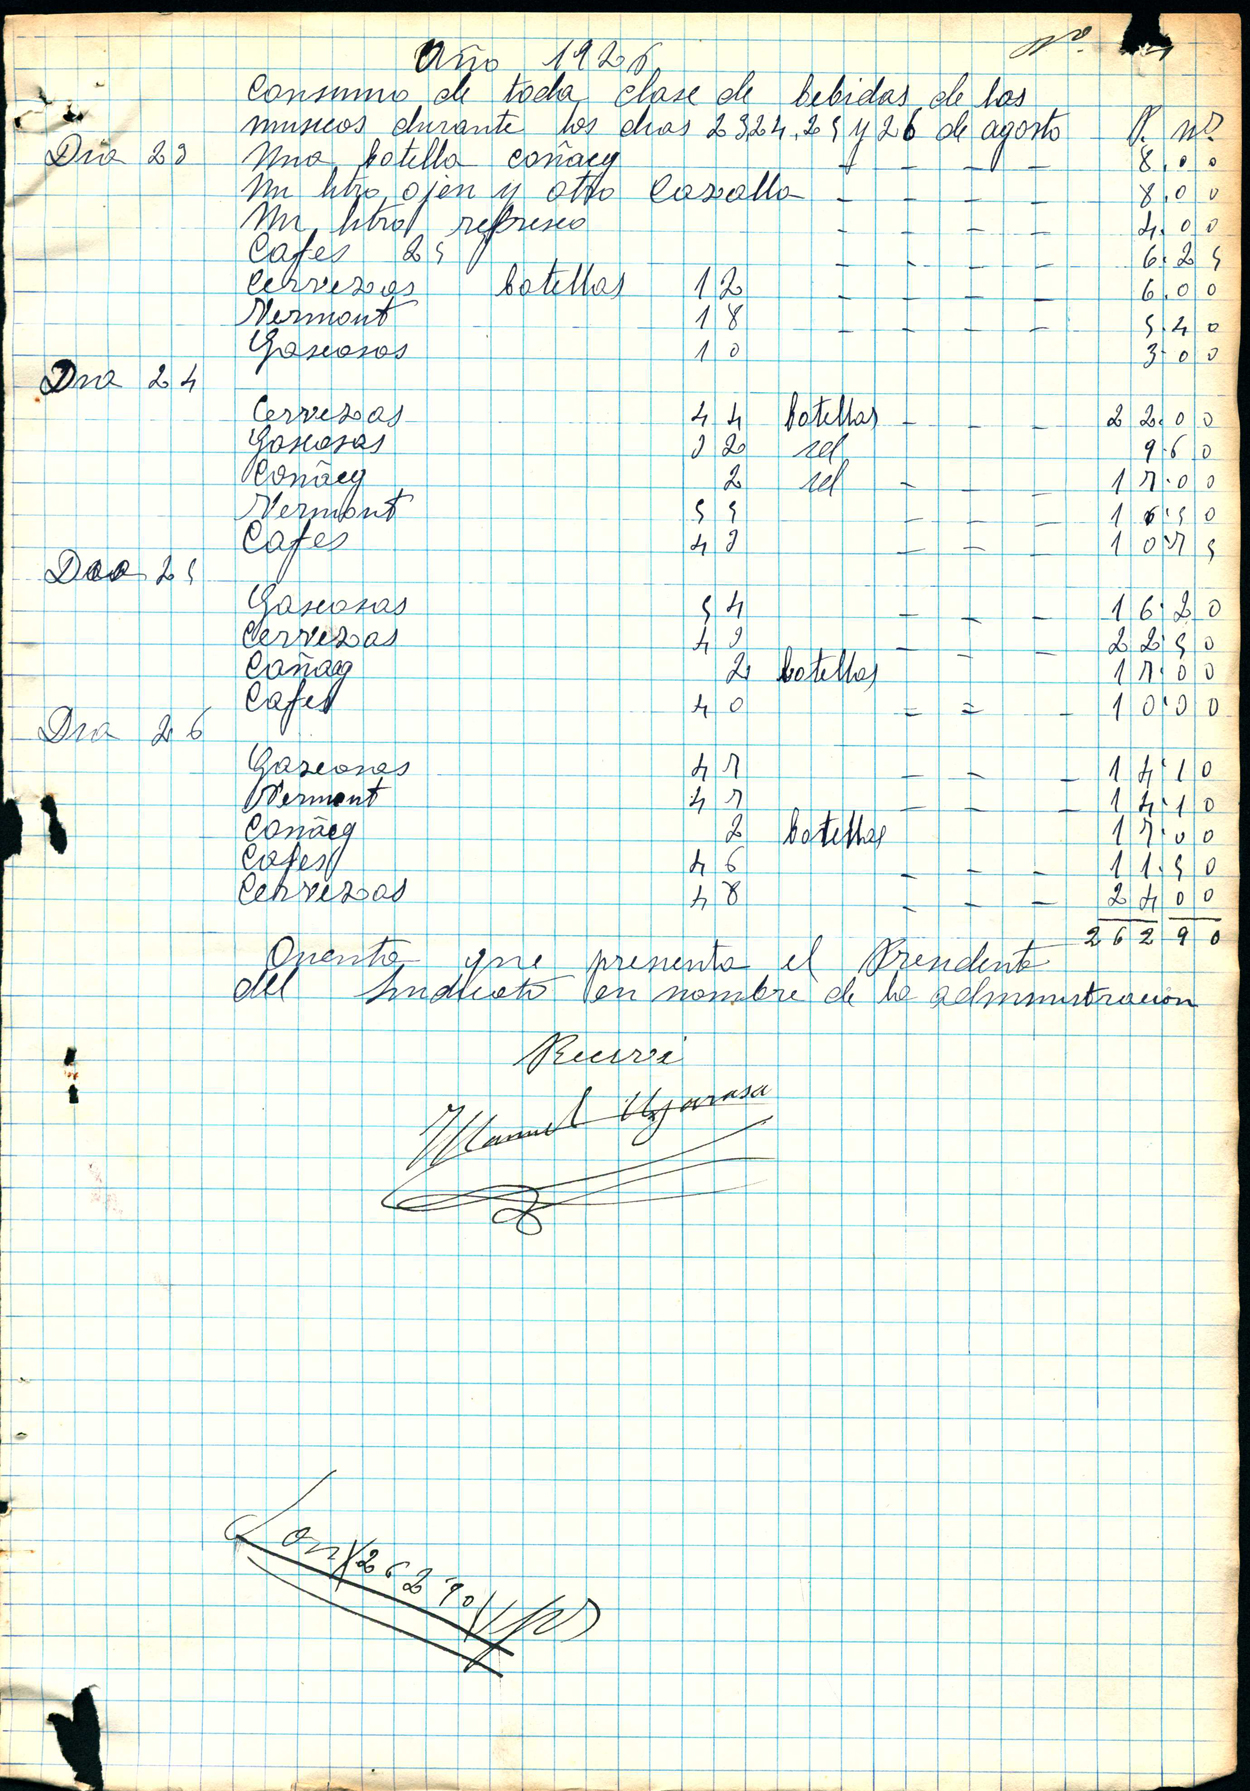 Año 1926
Nº.
Consumo de toda clase de bebidas de los
musicos durante los dias 23 24. 25 y 26 de agosto
Dia 23 Una botella coñacg - - - - 8.00
Un litro ojen y otro Cazalla - - - - 8.00
Un litro refresco - - - - 4.00
Cafes 25 - - - - 6.25
Cervezas botellas 12 - - - - 6.00
Vermout 18 - - - - 5.40
Gaseosas 10 3.00
Dia 24
Cervezas 44 botellas - - - 22.00
Gaseosas 32 id 9.60
Coñacg 2 id - - - 17.00
Vermout 55 - - - 16.50
Cafes 43 - - - 10.75
Dia 25
Gaseosas 54 - - - 16.20
Cervezas 45 - - - 22.50
Coñag 2 botellas 17.00
Cafes 40 - - - 10.00
Dia 26
Gaseosas 47 - - - 14.10
Vermout 47 - - - 14.10
Coñacg 2 botellas 17.00
Cafes 46 - - - 11.50
Cervezas 48 - - - 24 00
262 90
Cuenta que presenta el Presidente
del Sindicato en nombre de la administracion
Recivi
Manuel
262'90